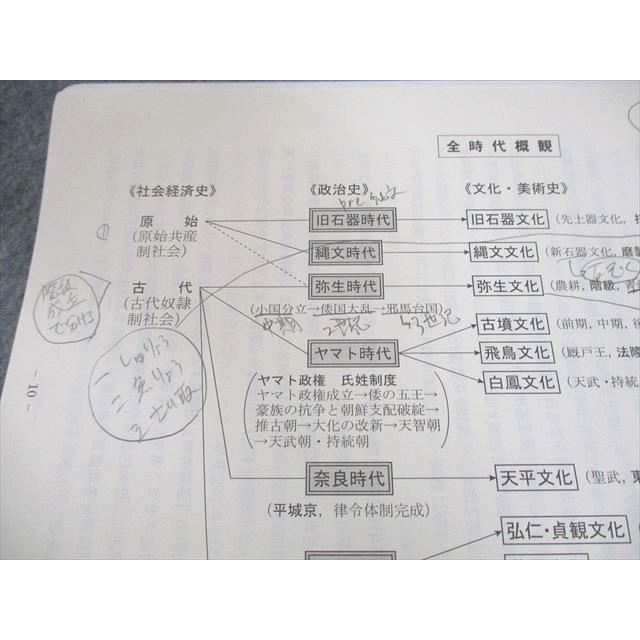 全時代概観
《社会経済史》
《政治史》
《文化・美術史》
原始
(原始共産
制社会)
旧石器時代
旧石器文化
(先土器文化,
縄文時代
縄文文化
(新石器文化,
弥生時代
弥生文化
(農耕, 階級,
古代
(古代奴隷
制社会)
(小国分立→倭国大乱→邪馬台国)
中期
2世紀
3世紀
階級
成立
で分ける
一 しゅりょう
ヤマト時代
古墳文化
(前期, 中期, 後
飛鳥文化
(厩戸王, 法隆
白鳳文化
(天武・持統
ヤマト政権 氏姓制度
ヤマト政権成立→倭の五王→
豪族の抗争と朝鮮支配破綻→
推古朝→大化の改新→天智朝
→天武朝・持統朝
奈良時代
天平文化
(聖武,
(平城京, 律令体制完成)
弘仁・貞観文化
- 10 -